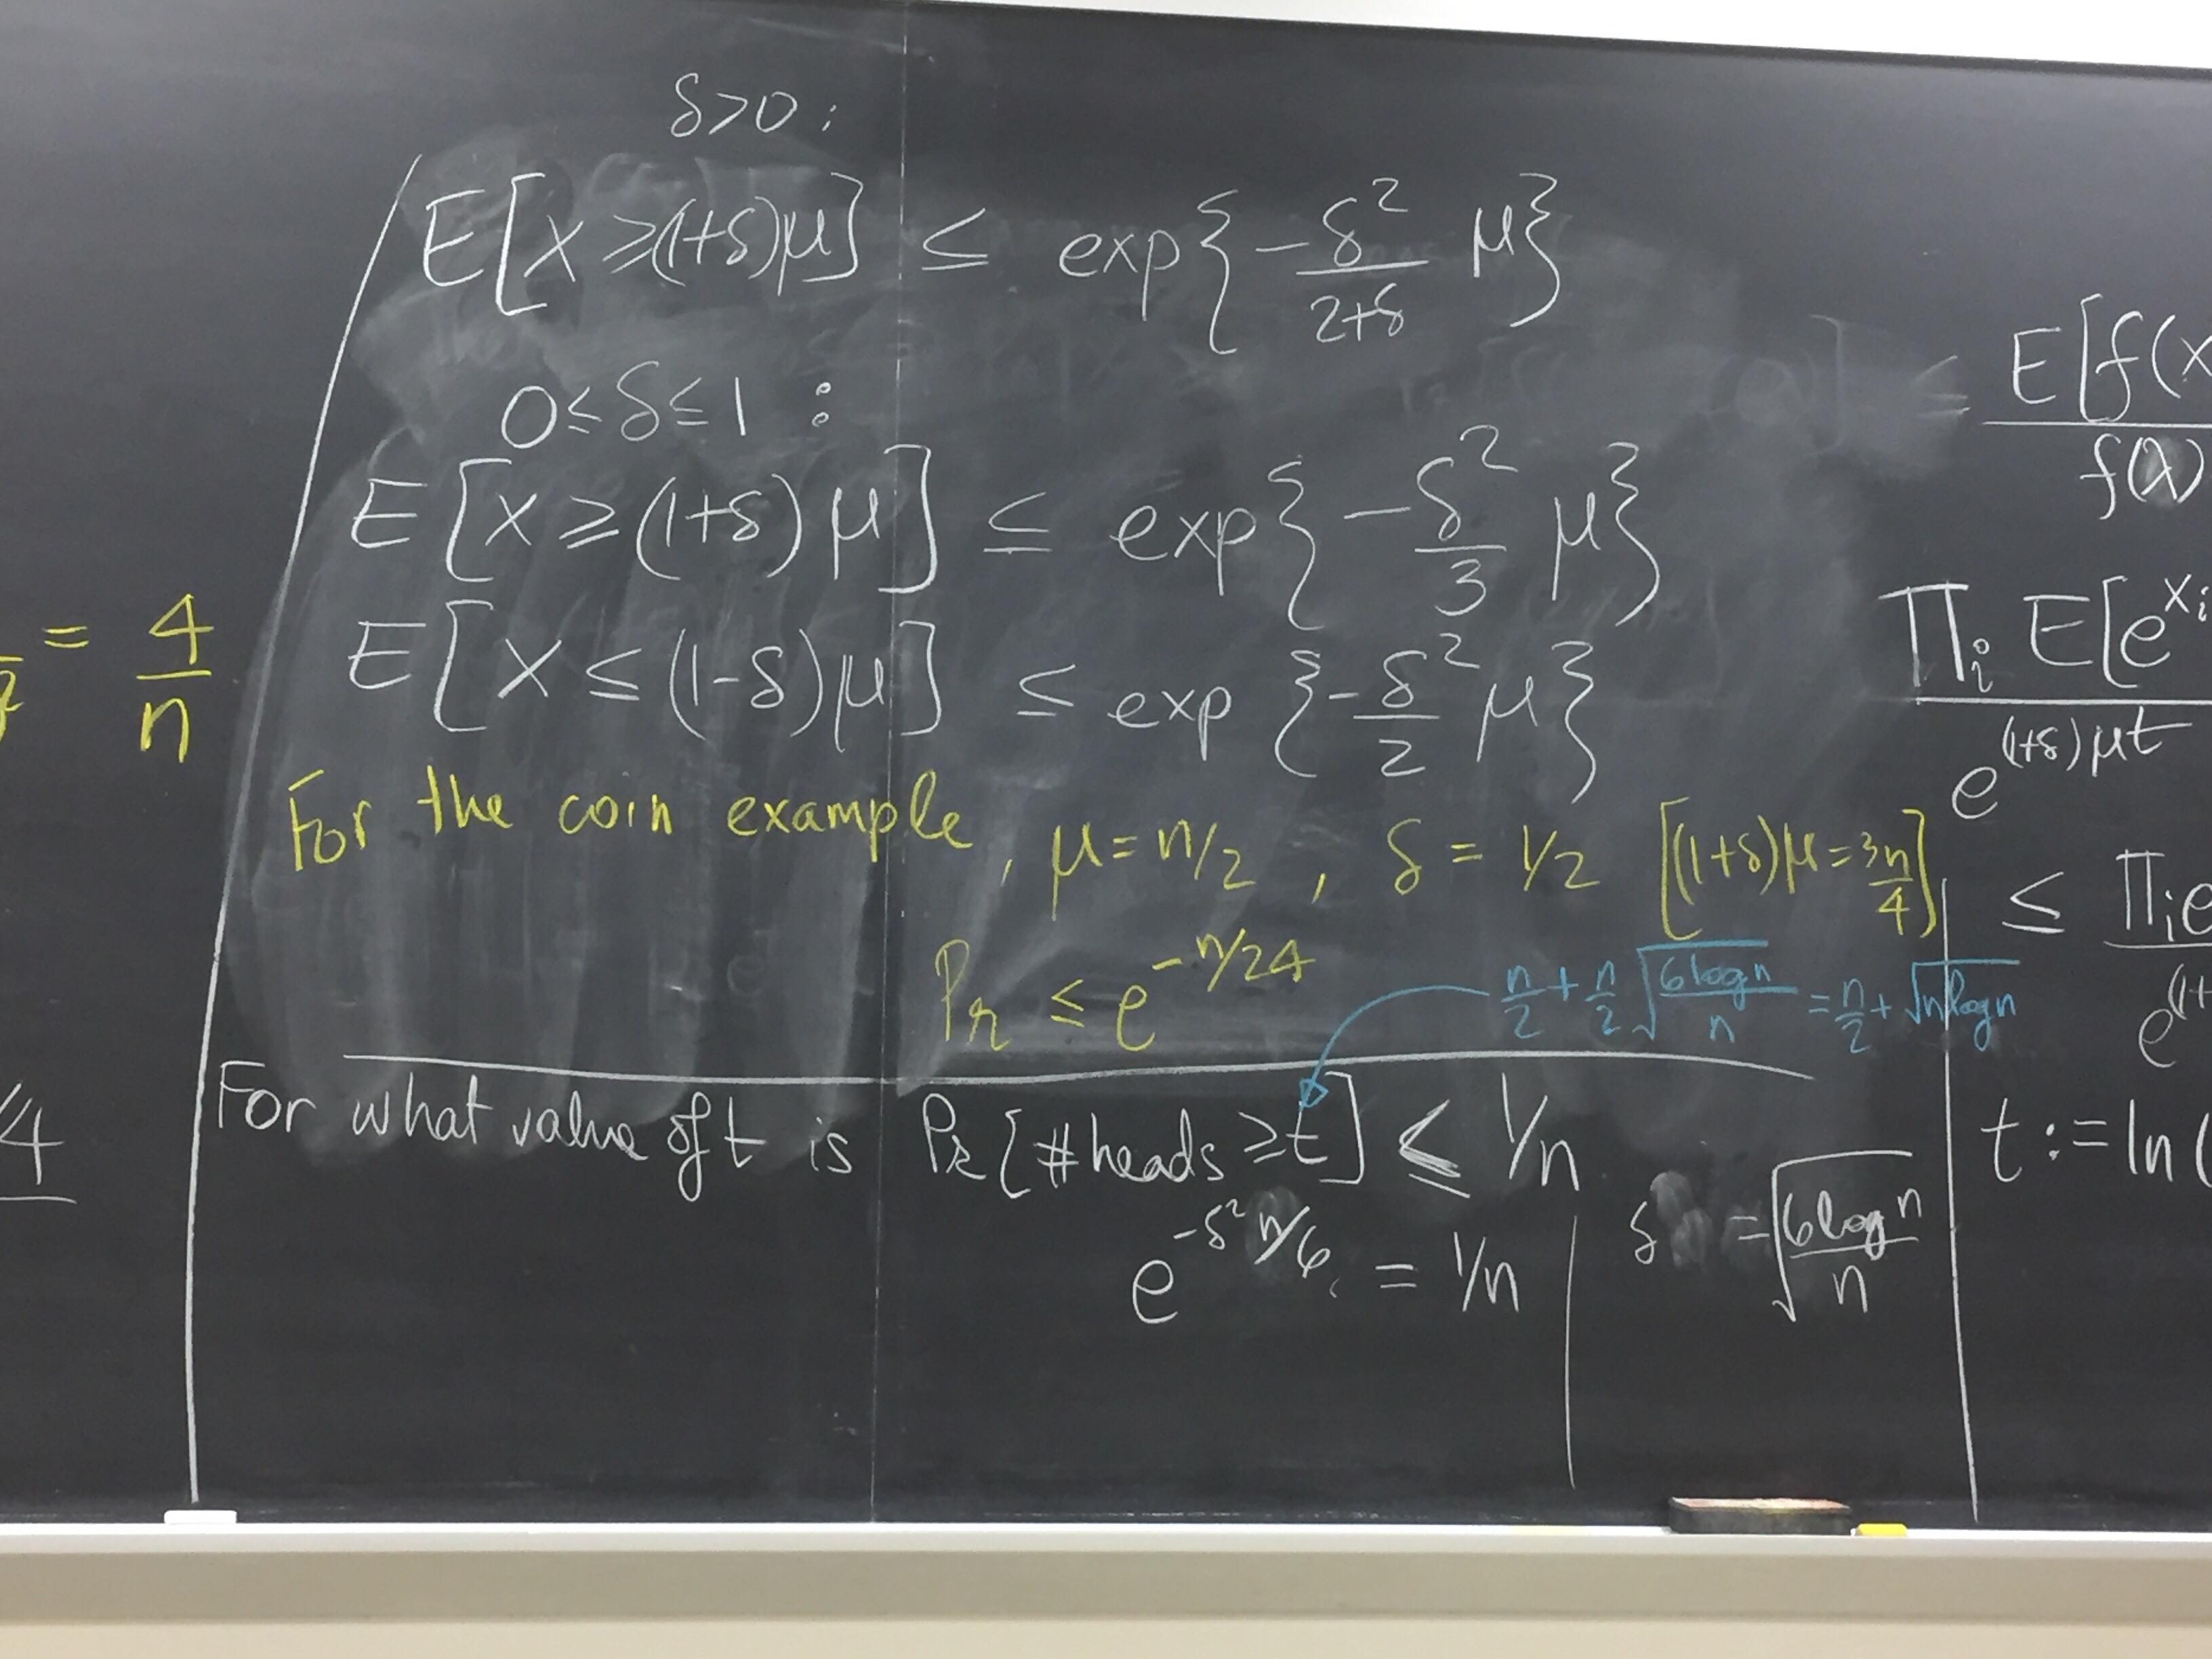 δ>0:
E[X ≥(1+δ)μ] ≤ exp{-δ²/(2+δ) μ}
0≤δ≤1 :
E[X ≥ (1+δ) μ] ≤ exp{-δ²/3 μ}
E[X ≤ (1-δ)μ] ≤ exp{-δ²/2 μ}
For the coin example, μ=n/2, δ = 1/2 [(1+δ)μ=3n/4]
Pr ≤ e^{-n/24}
n/2 + n/2 √(6logn/n) = n/2 + √nlogn
For what value of t is Pr[#heads ≥t] ≤ 1/n
e^{-δ² n/6} = 1/n
δ = √(6logn/n)
= 4/n
/4
≤ E[f(x
f(λ)
∏i E[e^{Xi
e^{(1+δ)μt}
≤ ∏i e
e^{(1+
t := ln(